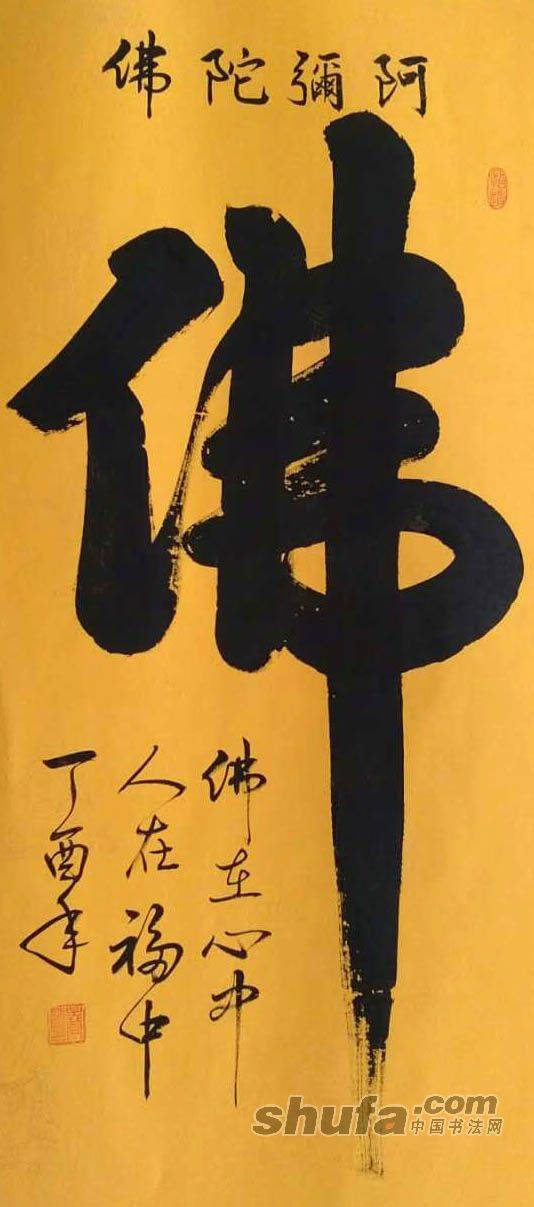 阿彌陀佛
佛
佛在心中
人在福中
丁酉年
shufa.com
中国书法网